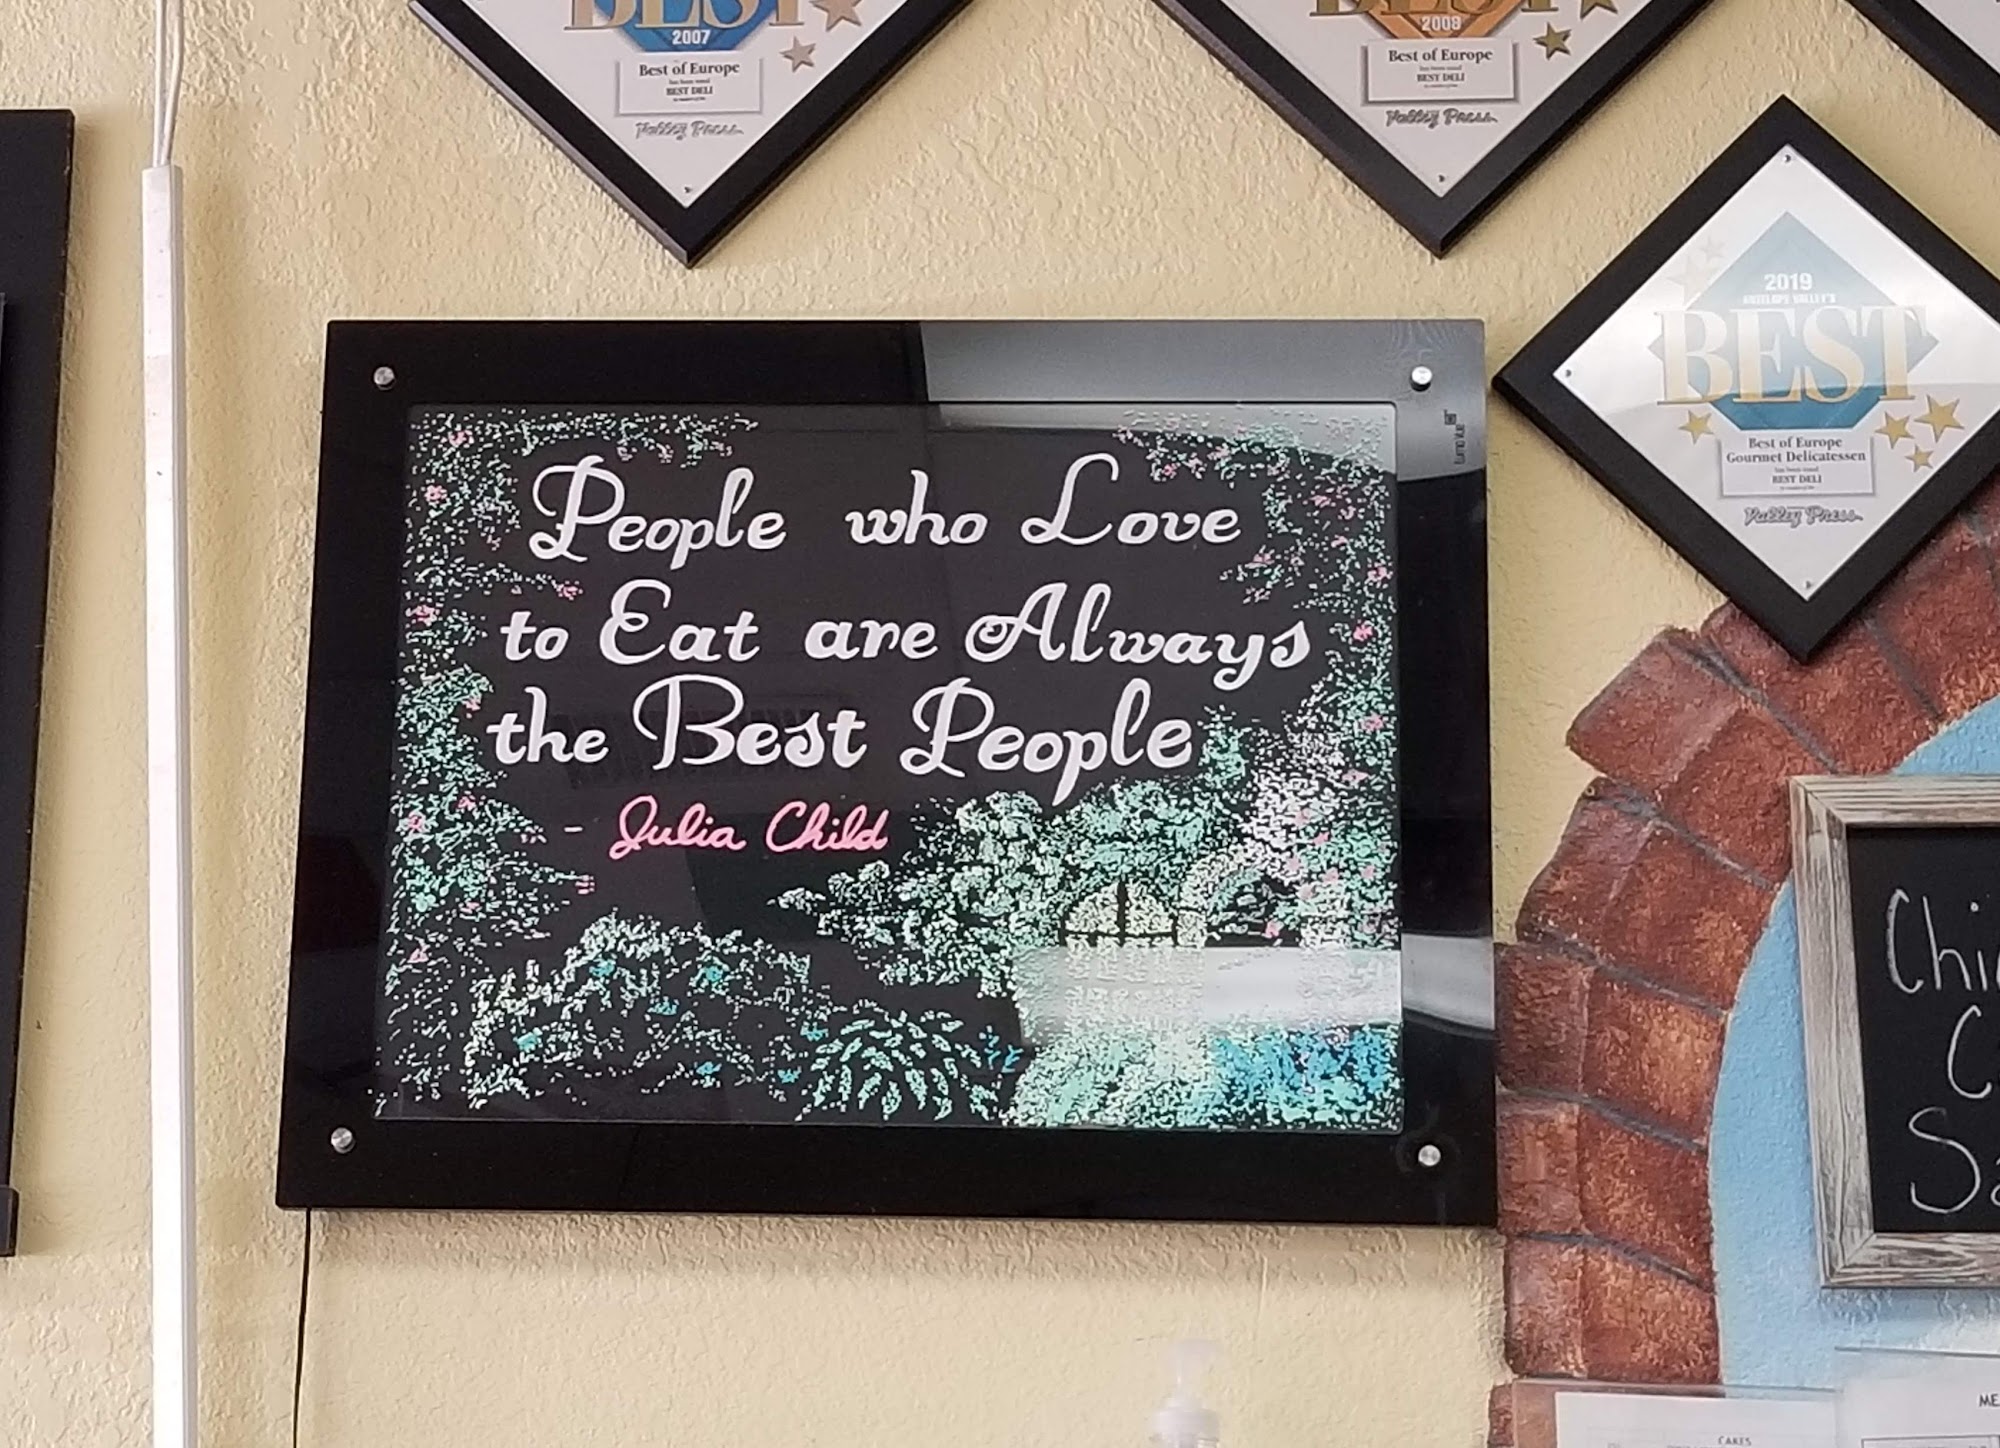 BEST
2007
Best of Europe
has been voted
BEST DELI
Valley Press
BEST
2008
Best of Europe
has been voted
BEST DELI
Valley Press
2019
ANTELOPE VALLEY'S
BEST
Best of Europe
Gourmet Delicatessen
has been voted
BEST DELI
Valley Press
People who Love
to Eat are Always
the Best People
- Julia Child
Chi
C
Sa
CAKES
ME